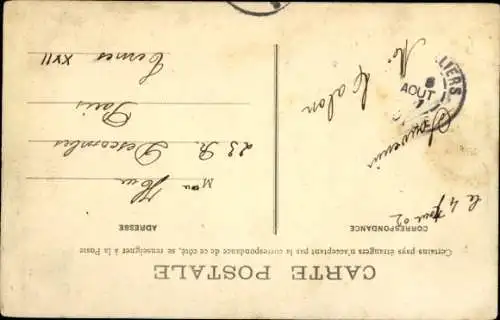 CARTE POSTALE
Certains pays étrangers n'acceptant pas la correspondance de ce côté, se renseigner à la Poste
CORRESPONDANCE
ADRESSE
le 4
Souvenir
Mr
23 R. Descombes
Paris
Ternes XVII
LIERS
8
AOUT